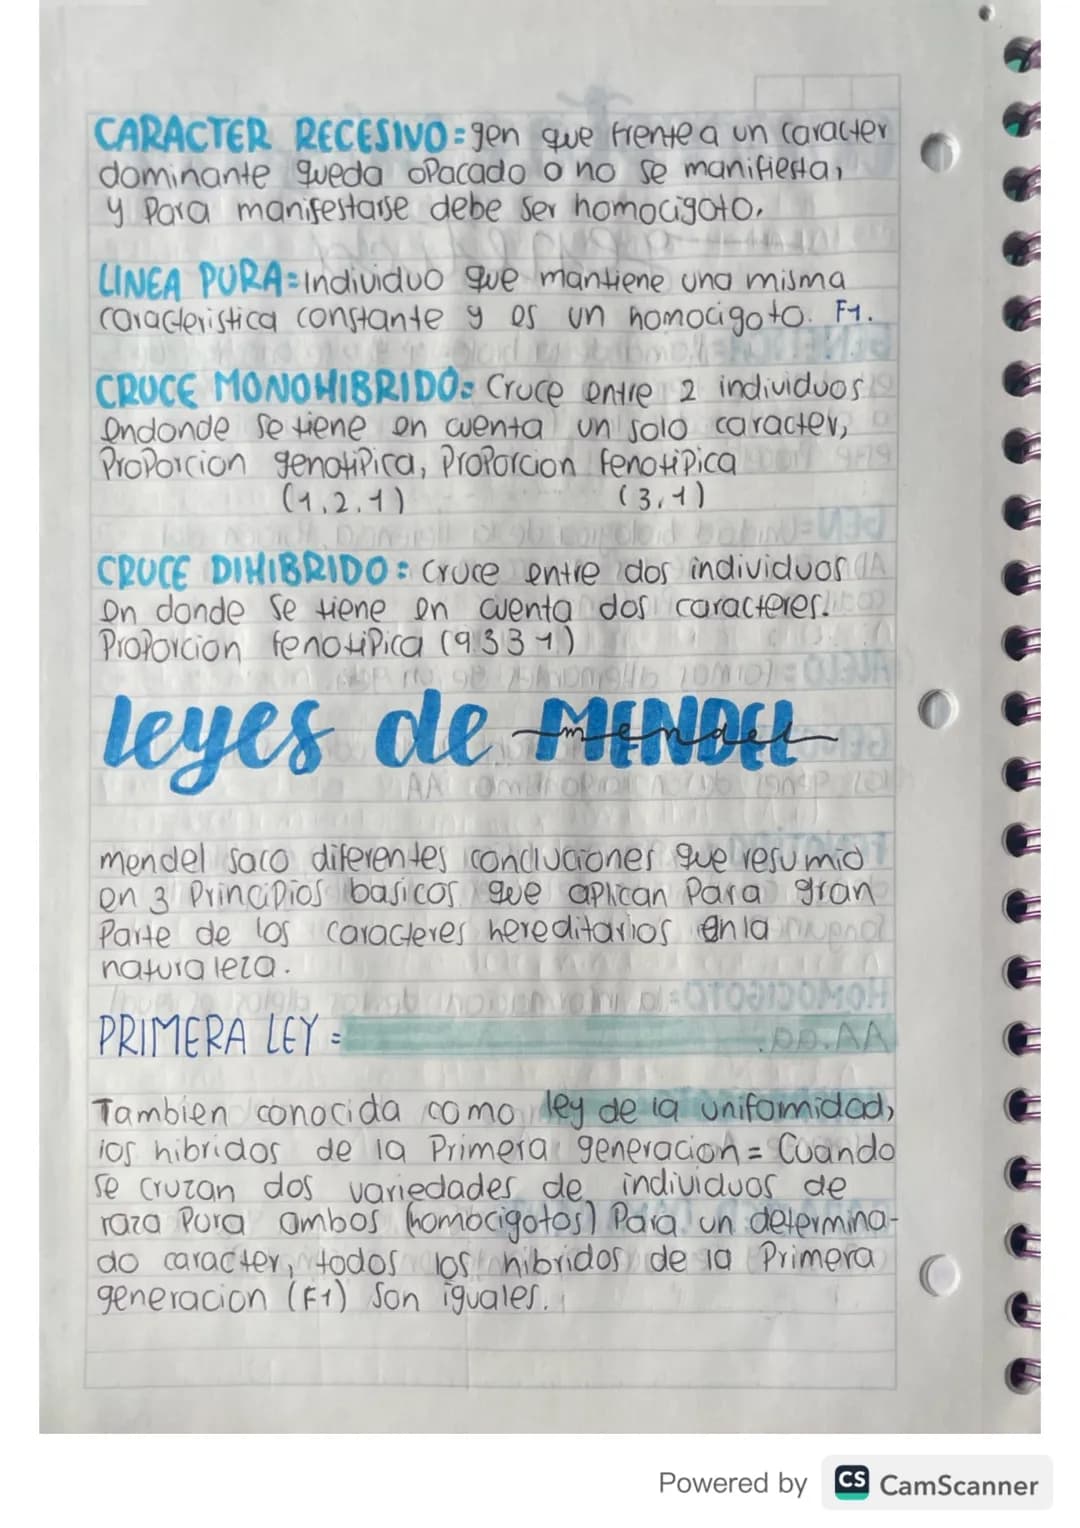 CARACTER RECESIVO = gen que frente a un caracter
dominante queda opacado o no se manifiesta,
y Para manifestarse debe ser homocigoto.
LINEA PURA = Individuo que mantiene una misma
caracteristica constante y es un homocigoto. F1.
CRUCE MONOHIBRIDO = Cruce entre 2 individuos
endonde se tiene en cuenta un solo caracter,
Proporcion genotipica, Proporcion fenotipica
(1,2,1) (3,1)
CRUCE DIHIBRIDO = cruce entre dos individuos
en donde se tiene en cuenta dos caracteres.
Proporcion fenotipica (9 3 3 1)
leyes de MENDEL
mendel
mendel saco diferentes concluciones que resumio
en 3 Principios basicos que aplican Para gran
Parte de los caracteres hereditarios en la
naturaleza.
PRIMERA LEY =
Tambien conocida como ley de la uniformidad,
los hibridos de la Primera generacion = Cuando
se cruzan dos variedades de individuos de
raza Pura ambos (homocigotos) Para un determina-
do caracter, todos los hibridos de la Primera
generacion (F1) son iguales.
Powered by CS CamScanner